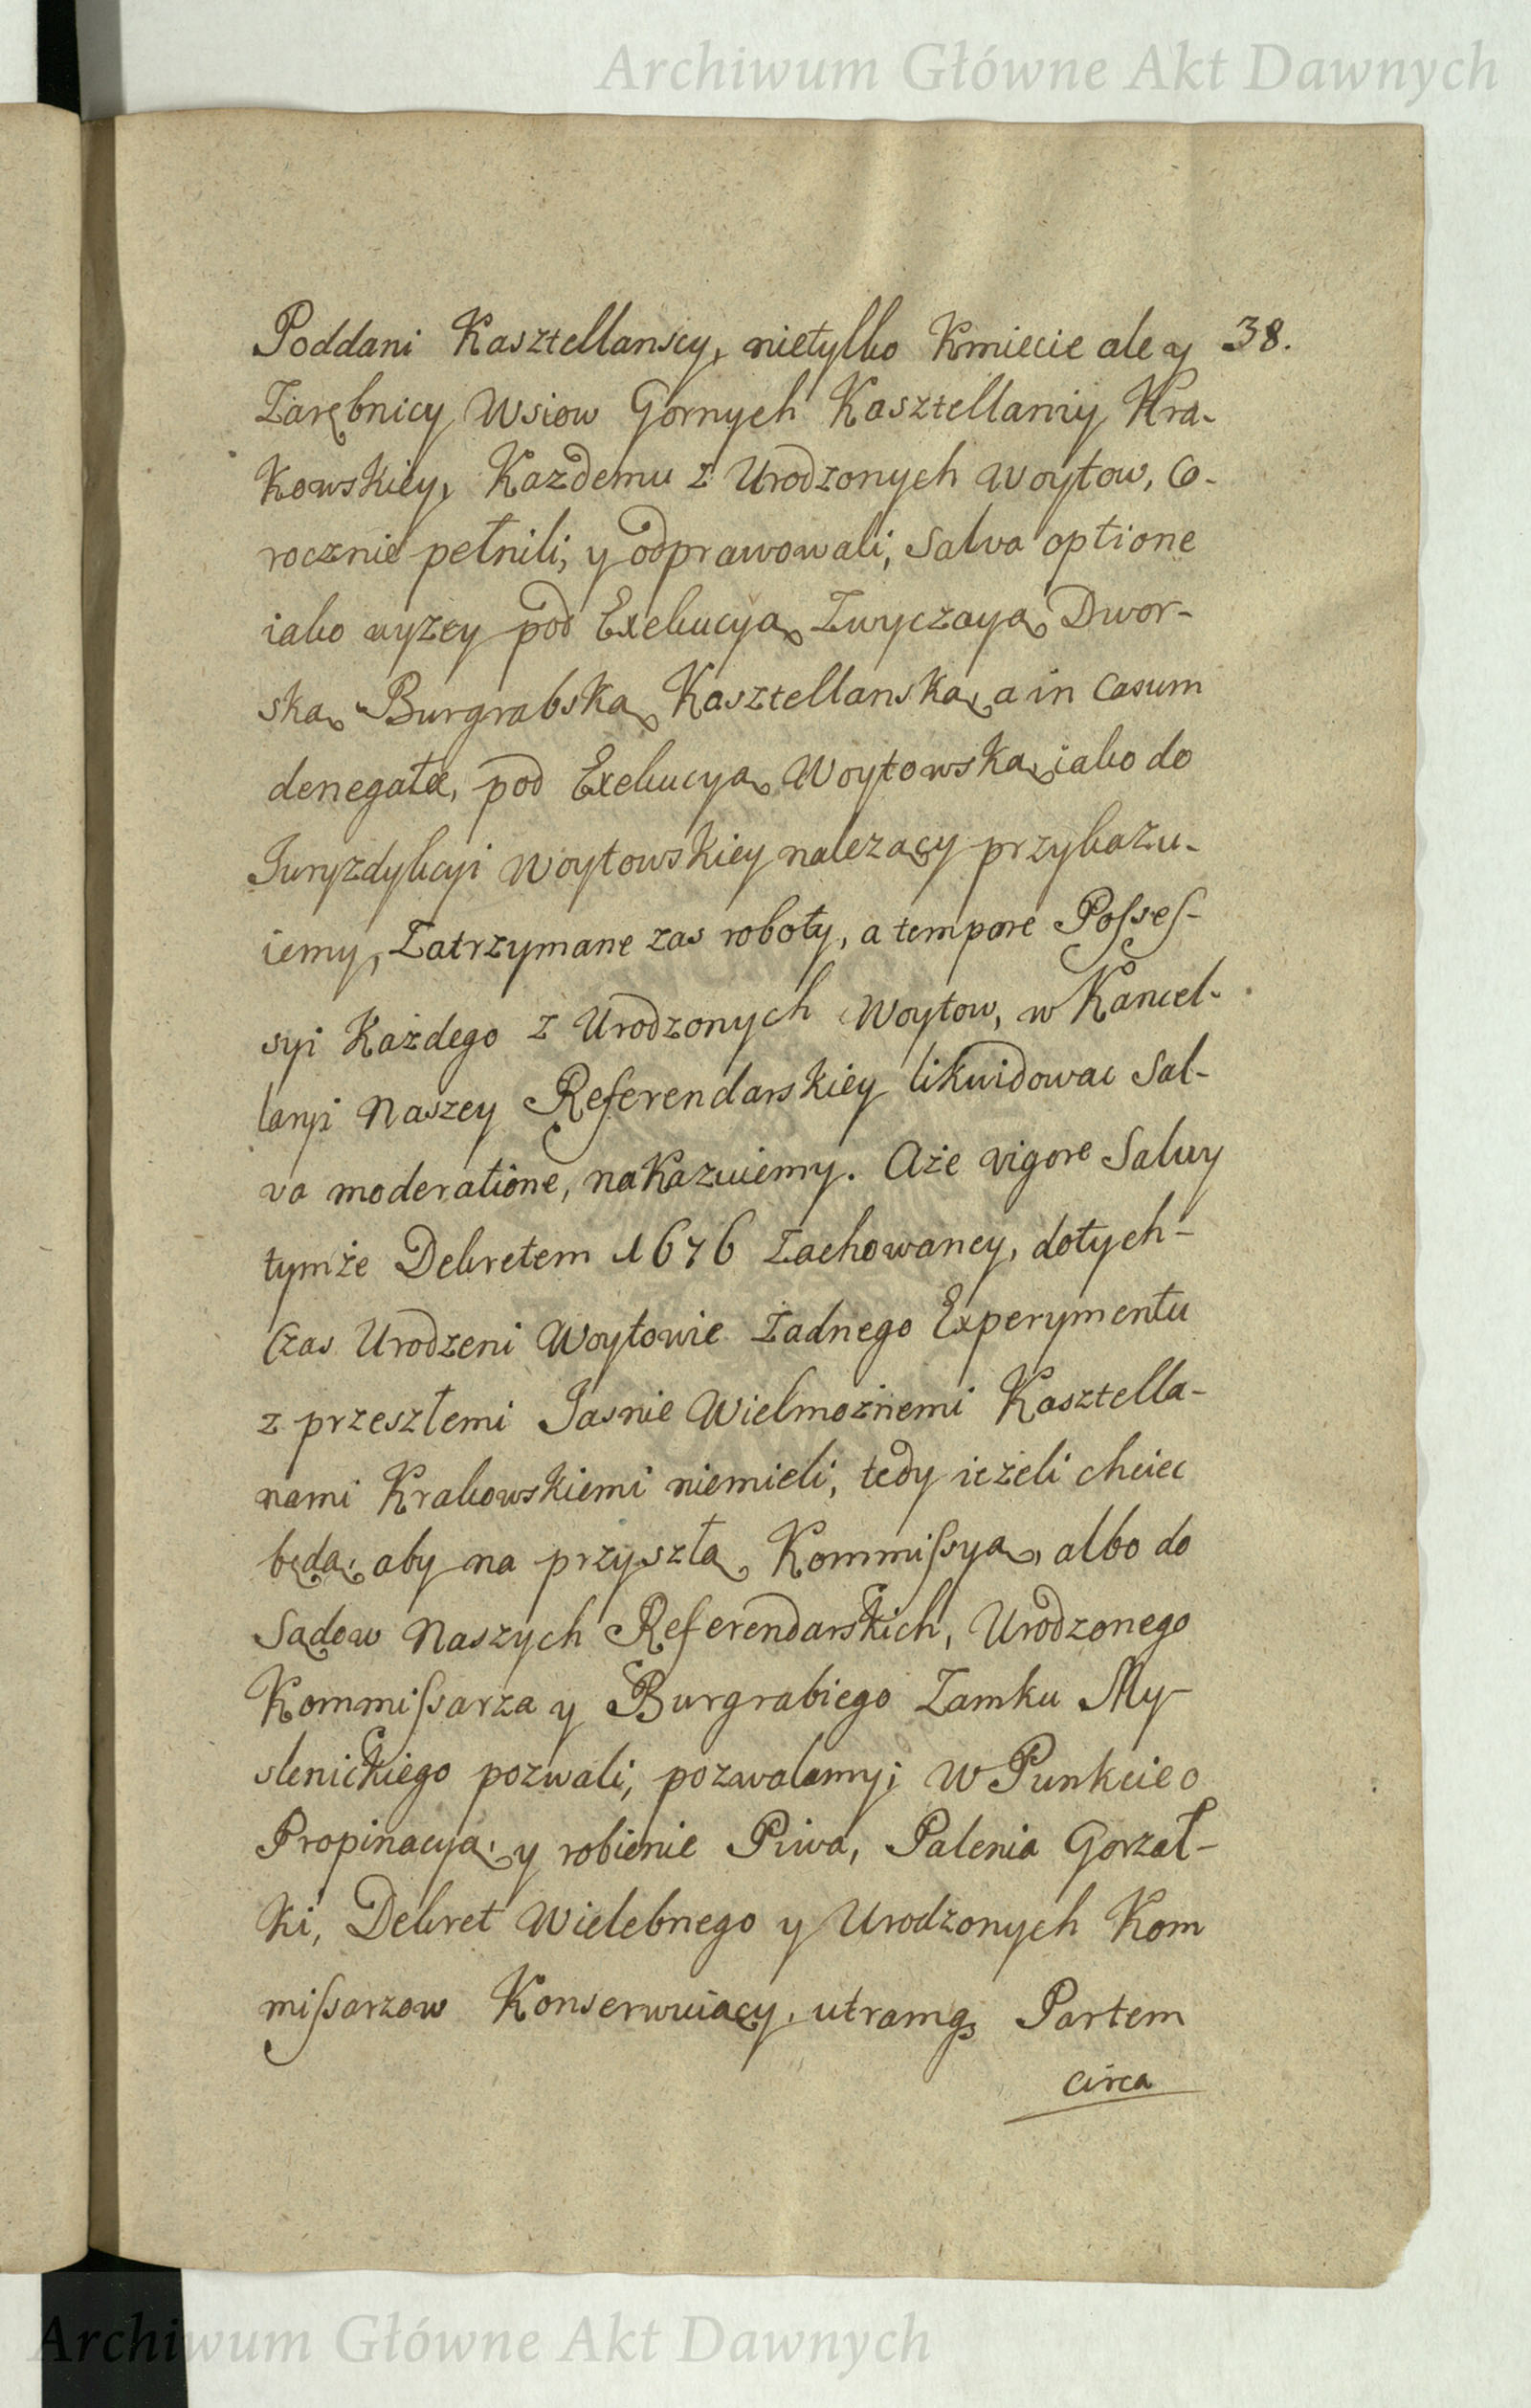 Archiwum Główne Akt Dawnych
38.
Poddani Kasztellanscy, nietylko Kmiecie ale y
Zarębnicy Wsiow Gornych Kasztellaniy Kra-
kowskiey, Kazdemu z Urodzonych Woytow, Co-
rocznie pełnili, y odprawowali, Salva optione
iako wyzey pod Exekucyą Zwyczayą Dwor-
ską Burgrabską Kasztellanską, a in Casum
denegatæ, pod Exekucyą Woytowską iako do
Juryzdykcyi Woytowskiey należący przykazu-
iemy, Zatrzymane zas roboty, a tempore Possес-
syi Każdego z Urodzonych Woytow, w Kancel-
laryi Naszey Referendarskiey likwidowac Sal-
va moderatione, nakazuiemy. Aże vigore Salwy
tymże Dekretem 1676 Zachowaney, dotych-
Czas Urodzeni Woytowie Żadnego Experymentu
z przeszłemi Jasnie Wielmożnemi Kasztella-
nami Krakowskiemi niemieli, tedy ieżeli chciec
będą, aby na przyszłą Kommissyą, albo do
Sądow Naszych Referendarskich, Urodzonego
Kommissarza y Burgrabiego Zamku My-
slenickiego pozwali, pozwalamy; W Punkcie o
Propinacyą, y robienie Piwa, Palenia Gorzał-
ki, Dekret Wielebnego y Urodzonych Kom
missarzow Konserwuiący, utramq3 Partem
circa
Archiwum Główne Akt Dawnych